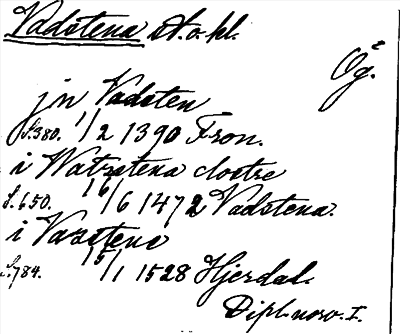 Vadstena st. o. kl.
Ög.
jn Vadsten
S. 380. 1/2 1390 Fron.
i Watzstena clostre
S. 650. 16/6 1472 Vadstena.
i Vazstena
S. 784. 15/1 1528 Hjerdal.
Dipl. norv. I.